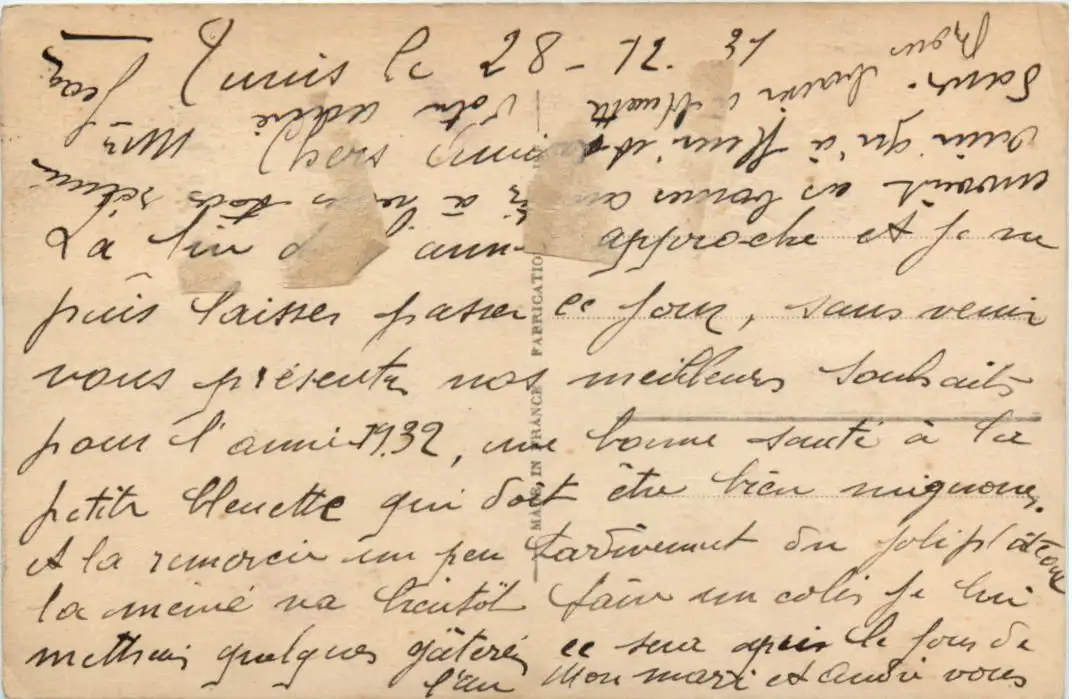 Tunis le 28-12.31
Chers Amis
La fin d' année approche et je ne
puis laisser passer ce jour, sans venir
vous présenter nos meilleurs souhaits
pour l'année 1932, une bonne santé à la
petite bleuette qui doit être bien mignonne,
et la remercier un peu tardivement du joli plateau
la mémé va bientôt faire un colis je lui
mettrais quelques gâteries ce sera après le jour de
l'an Mon mari et André vous
envoient les bonnes à tous réunis
ainsi qu'à Henriette
Sans. Bleuette Votre Mme
MADE IN FRANCE FABRICATION